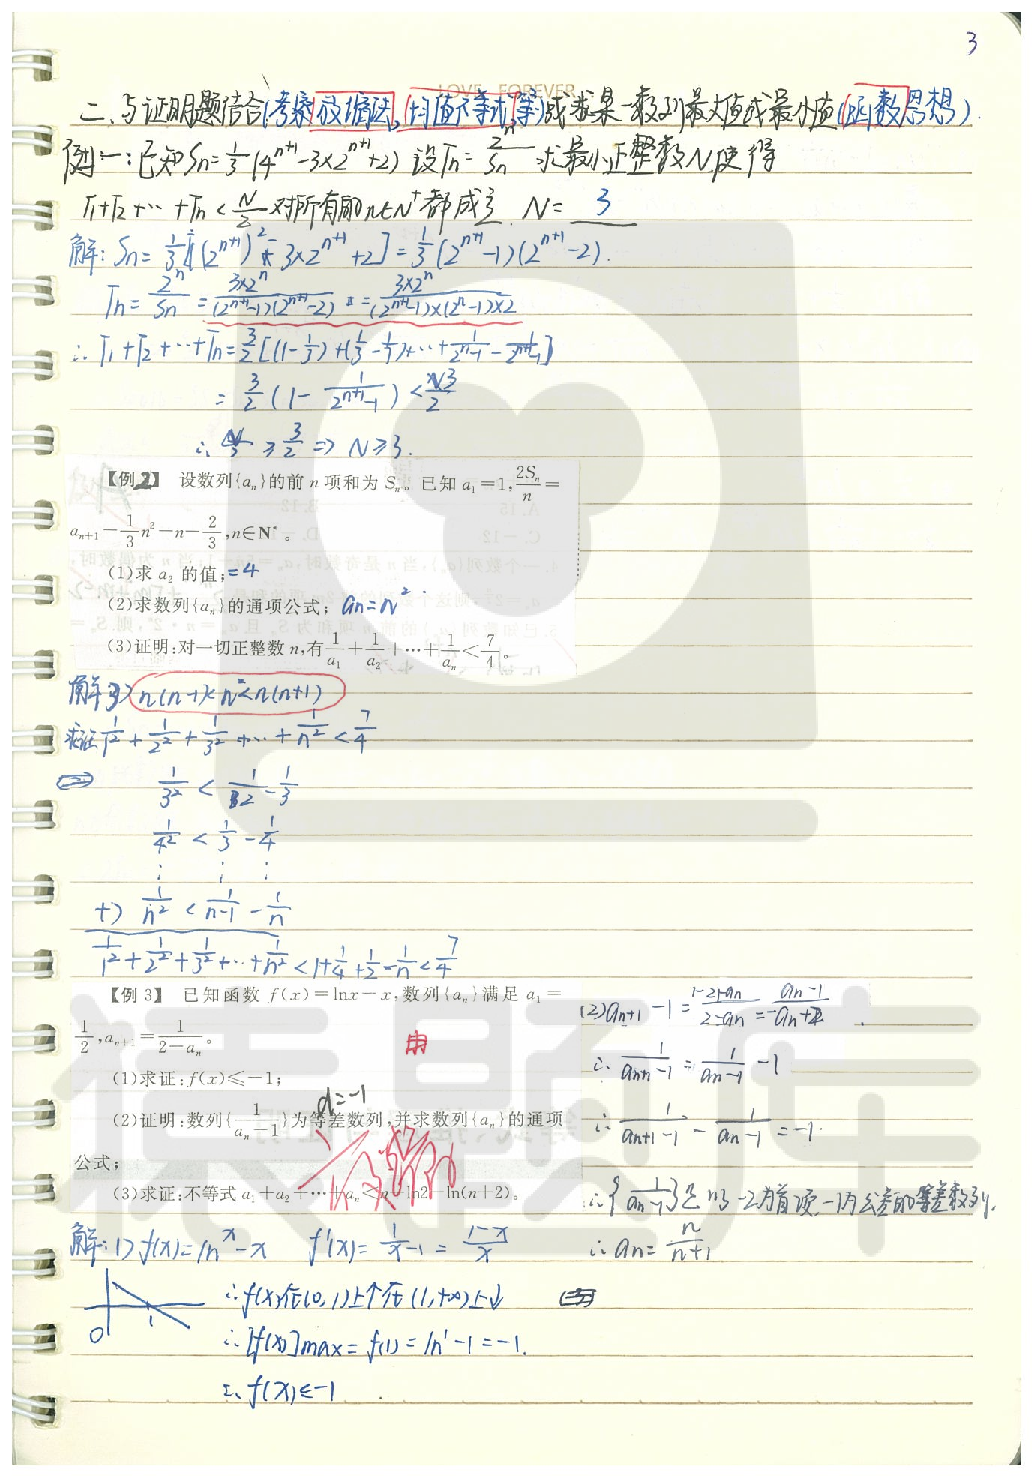 3
LOVE FOREVER
二、与证明题结合(考察放缩法、均值不等式等)或求某一数列最大值或最小值(函数思想).
例一:已知Sn=1/3(4^(n+1)-3×2^(n+1)+2) 设Tn=2^n/Sn 求最小正整数N,使得
T1+T2+…+Tn<N/2 对所有的n∈N+都成立. N= 3
解:Sn=1/3[(2^(n+1))^2-3×2^(n+1)+2]=1/3(2^(n+1)-1)(2^(n+1)-2).
Tn=2^n/Sn=3×2^n/((2^(n+1)-1)(2^(n+1)-2))=3×2^n/((2^(n+1)-1)×(2^n-1)×2)
∴T1+T2+…+Tn=3/2[(1-1/3)+(1/3-1/7)+…+1/(2^n-1)-1/(2^(n+1)-1)]
=3/2(1-1/(2^(n+1)-1))<N/2
∴ ≥3/2⇒N≥3.
【例2】 设数列{an}的前n项和为Sn。已知a1=1,2Sn/n=
a_(n+1)-1/3n²-n-2/3,n∈N*。
(1)求a2的值;=4
(2)求数列{an}的通项公式;an=n²
(3)证明:对一切正整数n,有1/a1+1/a2+…+1/an<7/4。
解3)n(n-1)<n²<n(n+1)
求证1/1²+1/2²+1/3²+…+1/n²<7/4
1/3²<1/2-1/3
1/4²<1/3-1/4
⋮ ⋮ ⋮
+) 1/n²<1/(n-1)-1/n
1/1²+1/2²+1/3²+…+1/n²<1+1/4+1/2-1/n<7/4
【例3】 已知函数f(x)=lnx-x,数列{an}满足a1=
1/2,a_(n+1)=1/(2-an)。
(1)求证:f(x)≤-1;
d=-1
(2)证明:数列{1/(an-1)}为等差数列,并求数列{an}的通项
公式;
(3)求证:不等式a1+a2+…+an<n-ln2-ln(n+2)。
(2)a_(n+1)-1=(1-2+an)/(2-an)=(an-1)/(-an+2)
∴1/(a_(n+1)-1)=1/(an-1)-1
∴1/(a_(n+1)-1)-1/(an-1)=-1.
∴{1/(an-1)}是以-2为首项,-1为公差的等差数列.
∴an=n/(n+1)
解:1)f(x)=ln^x-x f'(x)=1/x-1=(1-x)/x
O 1
∴f(x)在(0,1)上↑在(1,+∞)上↓
∴[f(x)]max=f(1)=ln^1-1=-1.
∴f(x)≤-1